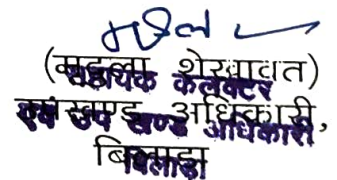 (मृदुला शेखावत)
सहायक कलेक्टर
उपखण्ड अधिकारी,
एवं उप खण्ड अधिकारी
बिलाड़ा
बिलाडा